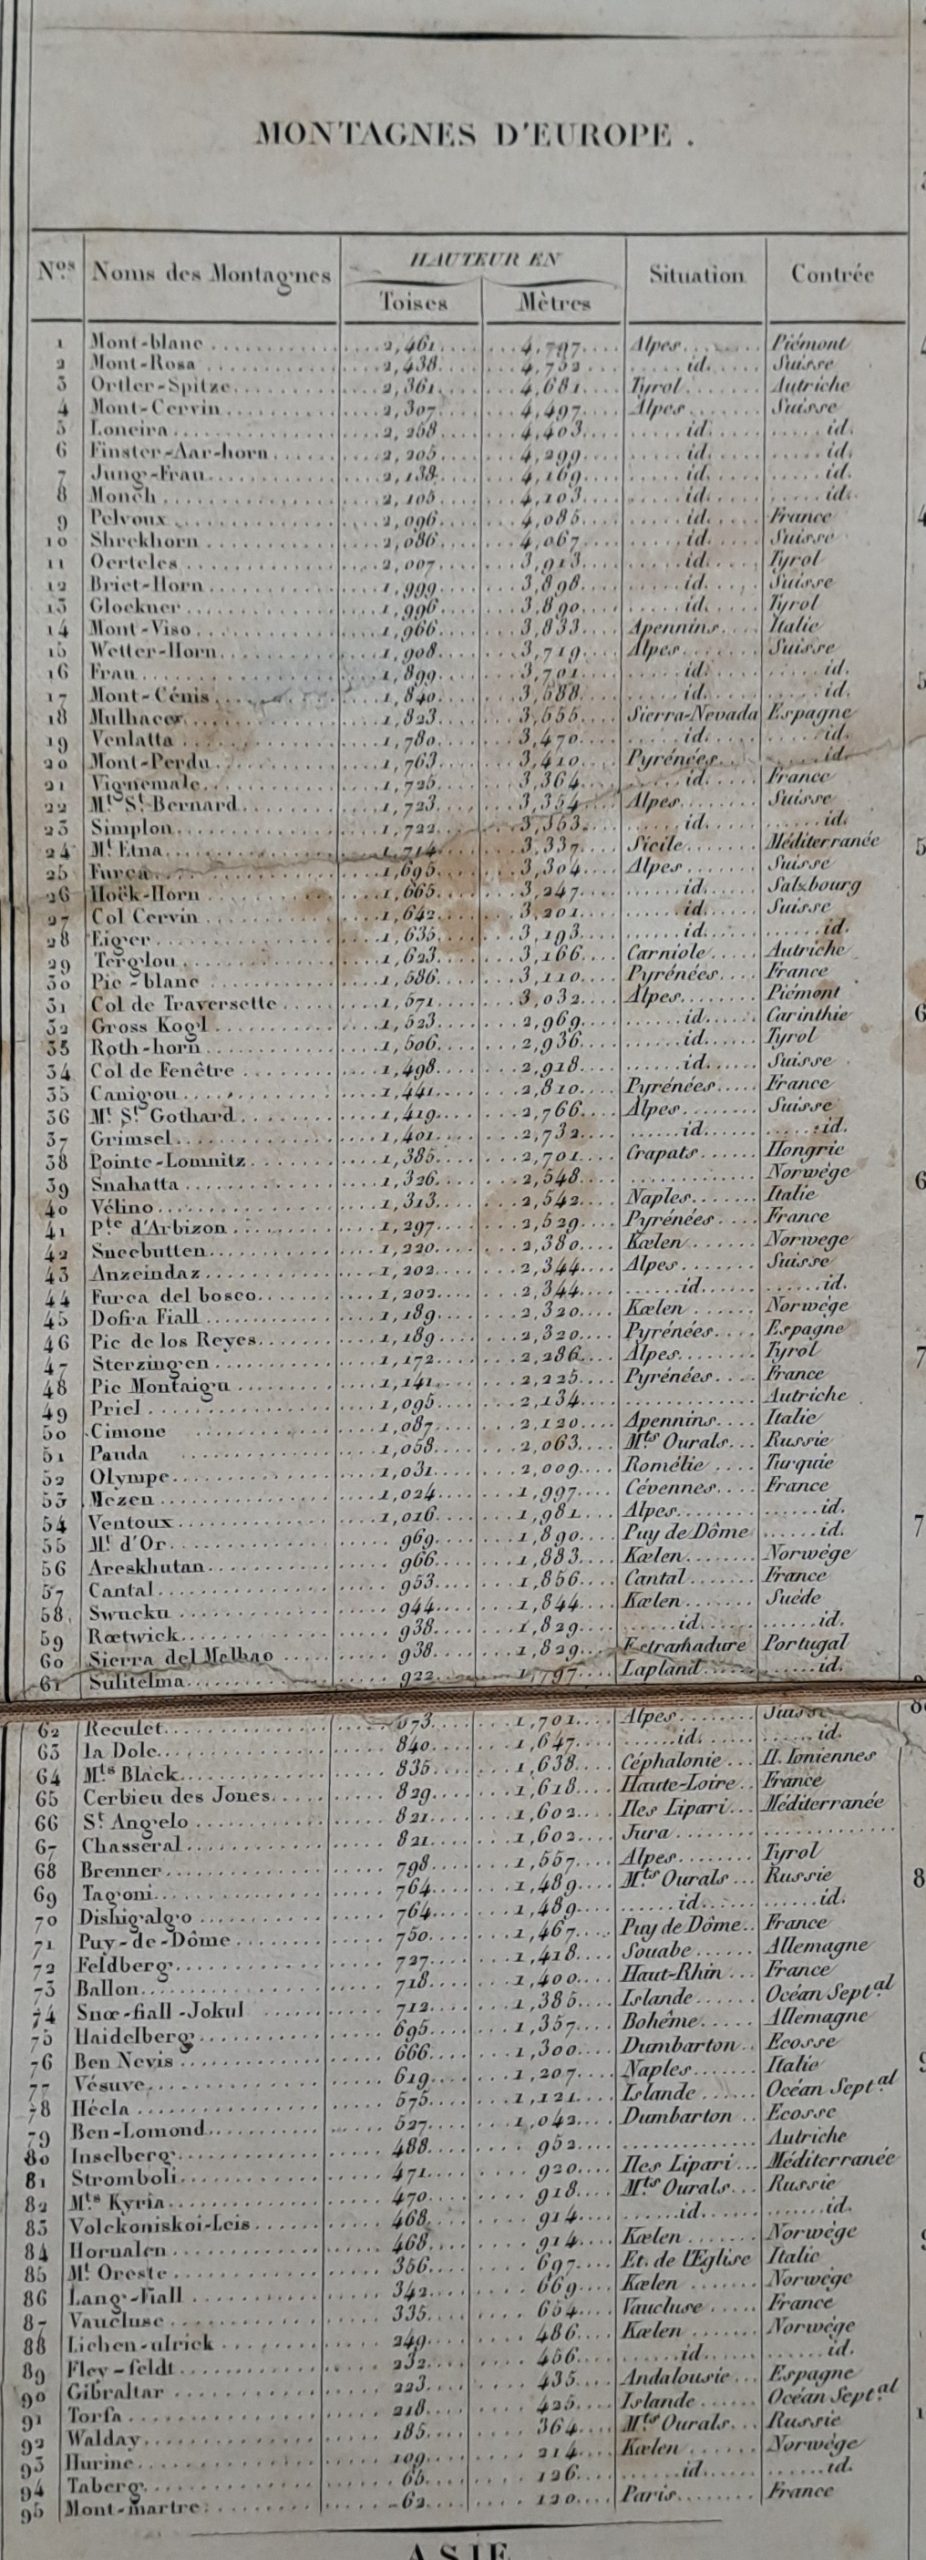 MONTAGNES D'EUROPE.
Nos Noms des Montagnes HAUTEUR EN Toises Mètres Situation Contrée
1 Mont-blanc 2,461 4,797 Alpes Piémont
2 Mont-Rosa 2,438 4,752 id. Suisse
3 Ortler-Spitze 2,361 4,681 Tyrol Autriche
4 Mont-Cervin 2,307 4,497 Alpes Suisse
5 Loneira 2,258 4,403 id. id.
6 Finster-Aar-horn 2,205 4,299 id. id.
7 Jung-Frau 2,138 4,169 id. id.
8 Monch 2,105 4,103 id. id.
9 Pelvoux 2,096 4,085 id. France
10 Shrekhorn 2,086 4,067 id. Suisse
11 Oerteles 2,007 3,913 id. Tyrol
12 Briet-Horn 1,999 3,898 id. Suisse
13 Glockner 1,996 3,890 id. Tyrol
14 Mont-Viso 1,966 3,833 Apennins Italie
15 Wetter-Horn 1,908 3,719 Alpes Suisse
16 Frau 1,899 3,701 id. id.
17 Mont-Cénis 1,840 3,588 id. id.
18 Mulhacer 1,823 3,555 Sierra-Nevada Espagne
19 Venlatta 1,780 3,470 id. id.
20 Mont-Perdu 1,763 3,410 Pyrénées id.
21 Vignemale 1,725 3,364 id. France
22 Mt St Bernard 1,723 3,354 Alpes Suisse
23 Simplon 1,722 3,353 id. id.
24 Mt Etna 1,714 3,337 Sicile Méditerranée
25 Furca 1,695 3,304 Alpes Suisse
26 Hoëk-Horn 1,665 3,247 id. Salzbourg
27 Col Cervin 1,642 3,201 id. Suisse
28 Eiger 1,635 3,193 id. id.
29 Terglou 1,623 3,166 Carniole Autriche
30 Pic-blanc 1,586 3,110 Pyrénées France
31 Col de Traversette 1,571 3,032 Alpes Piémont
32 Gross Kogl 1,523 2,969 id. Carinthie
33 Roth-horn 1,506 2,936 id. Tyrol
34 Col de Fenêtre 1,498 2,918 id. Suisse
35 Canigou 1,441 2,810 Pyrénées France
36 Mt St Gothard 1,419 2,766 Alpes Suisse
37 Grimsel 1,401 2,732 id. id.
38 Pointe-Lomnitz 1,385 2,701 Crapats Hongrie
39 Snahatta 1,326 2,548 Norwège
40 Vélino 1,313 2,542 Naples Italie
41 Pte d'Arbizon 1,297 2,529 Pyrénées France
42 Sneebutten 1,220 2,380 Kœlen Norwege
43 Anzeindaz 1,202 2,344 Alpes Suisse
44 Furca del bosco 1,202 2,344 id. id.
45 Dofra Fiall 1,189 2,320 Kœlen Norwège
46 Pic de los Reyes 1,189 2,320 Pyrénées Espagne
47 Sterzingen 1,172 2,286 Alpes Tyrol
48 Pic Montaigu 1,141 2,225 Pyrénées France
49 Priel 1,095 2,134 Autriche
50 Cimone 1,087 2,120 Apennins Italie
51 Pauda 1,058 2,063 Mts Ourals Russie
52 Olympe 1,031 2,009 Romélie Turquie
53 Mezen 1,024 1,997 Cévennes France
54 Ventoux 1,016 1,981 Alpes id.
55 Mt d'Or 969 1,890 Puy de Dôme id.
56 Areskhutan 966 1,883 Kœlen Norwège
57 Cantal 953 1,856 Cantal France
58 Swucku 944 1,844 Kœlen Suède
59 Rœtwick 938 1,829 id. id.
60 Sierra del Melhao 938 1,829 Estramadure Portugal
61 Sulitelma 922 1,797 Lapland id.
62 Reculet 873 1,701 Alpes Suisse
63 la Dole 840 1,647 id. id.
64 Mts Black 835 1,638 Céphalonie II. Ioniennes
65 Cerbieu des Jones 829 1,618 Haute-Loire France
66 St Angelo 821 1,602 Iles Lipari Méditerranée
67 Chasseral 821 1,602 Jura
68 Brenner 798 1,557 Alpes Tyrol
69 Tagoni 764 1,489 Mts Ourals Russie
70 Dishigalgo 764 1,489 id. id.
71 Puy-de-Dôme 750 1,467 Puy de Dôme France
72 Feldberg 727 1,418 Souabe Allemagne
73 Ballon 718 1,400 Haut-Rhin France
74 Snœ-fiall-Jokul 712 1,385 Islande Océan Septal
75 Haidelberg 695 1,357 Bohême Allemagne
76 Ben Nevis 666 1,300 Dumbarton Ecosse
77 Vésuve 619 1,207 Naples Italie
78 Hécla 575 1,121 Islande Océan Septal
79 Ben-Lomond 527 1,042 Dumbarton Ecosse
80 Inselberg 488 952 Autriche
81 Stromboli 471 920 Iles Lipari Méditerranée
82 Mts Kyria 470 918 Mts Ourals Russie
83 Volckoniskoi-Leis 468 914 id. id.
84 Hornalen 468 914 Kœlen Norwège
85 Mt Oreste 356 697 Et. de l'Eglise Italie
86 Lang-Fiall 342 669 Kœlen Norwège
87 Vaucluse 335 654 Vaucluse France
88 Lichen-ulrick 249 486 Kœlen Norwège
89 Fley-feldt 232 456 id. id.
90 Gibraltar 223 435 Andalousie Espagne
91 Torfa 218 425 Islande Océan Septal
92 Walday 185 364 Mts Ourals Russie
93 Hurine 109 214 Kœlen Norwège
94 Taberg 65 126 id. id.
95 Mont-martre 62 120 Paris France
ASIE